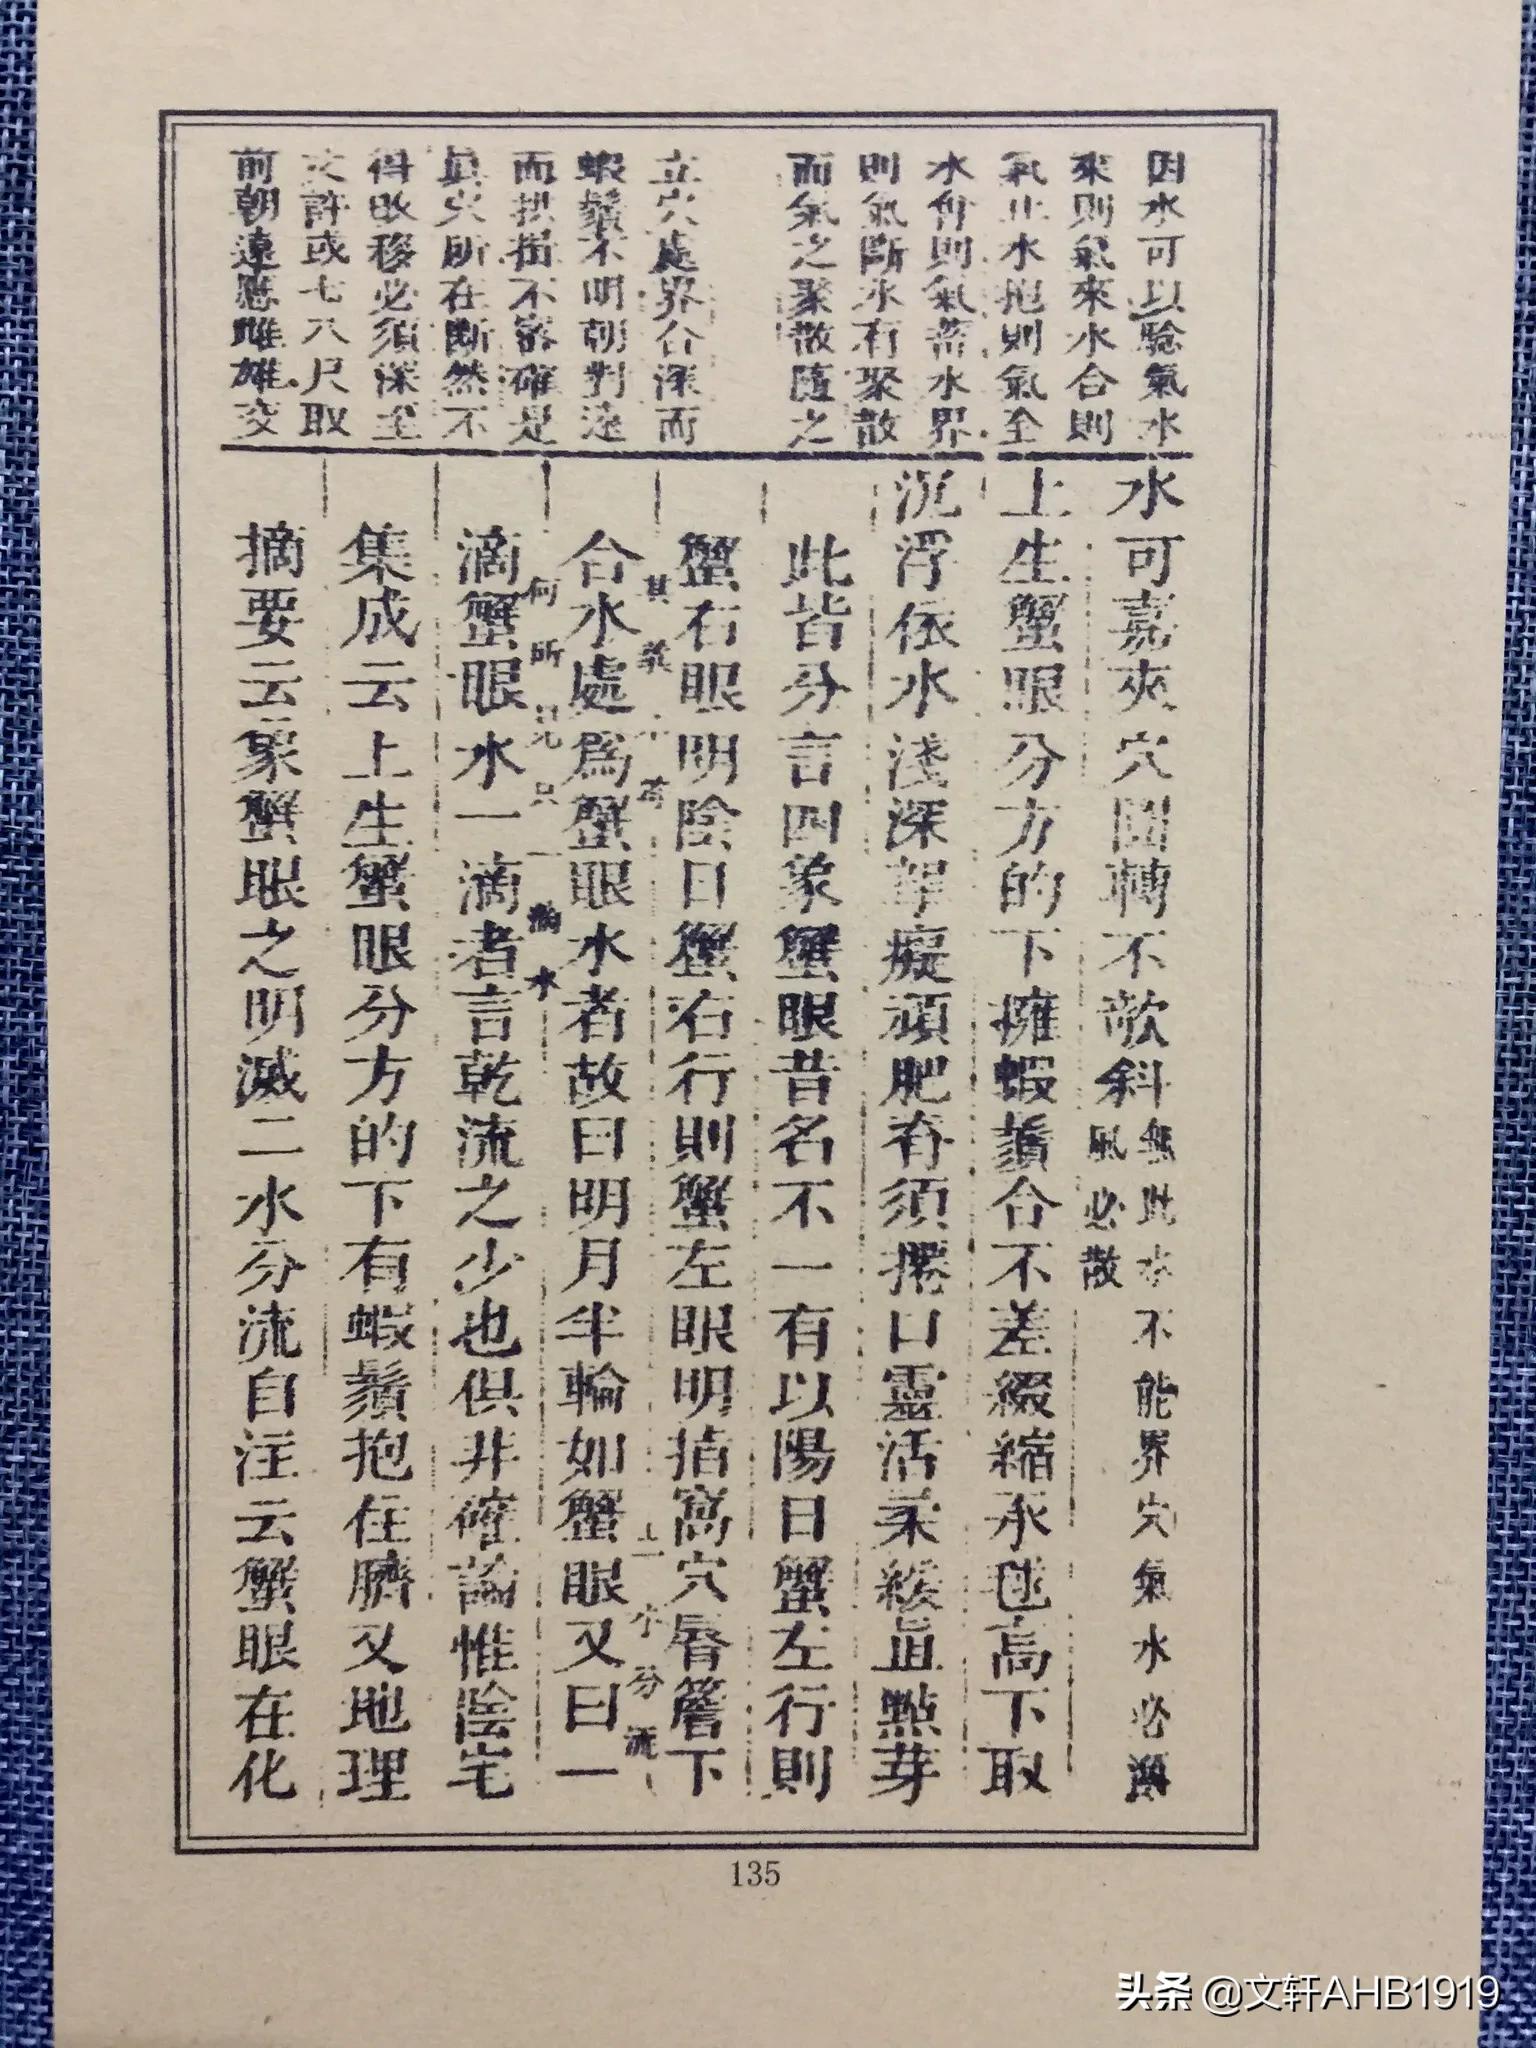 因水可以驗氣水
來則氣來水合則
氣止水抱則氣全
水會則氣蓄水界
則氣斷水有聚散
而氣之聚散隨之
立穴處界合深而
蝦鬚不明朝對遠
而拱揖不密確是
眞穴所在斷然不
得改移必須深至
丈許或七八尺取
前朝遠應雌雄交
水可嘉夾穴圓轉不欹斜無此水不能界穴氣水必漏
風必散
上生蟹眼分方的下擁蝦鬚合不差綴縮承毬高下取
沉浮依水淺深擇癡頑肥脊須捲口靈活柔緩直點芽
此皆分言四象蟹眼昔名不一有以陽日蟹左行則
蟹右眼明陰日蟹右行則蟹左眼明指窩穴唇簷下
其義
上一小分流
合水處爲蟹眼水者故曰明月半輪如蟹眼又曰一
何所
只一滴水
滴蟹眼水一滴者言乾流之少也俱非確論惟陰宅
集成云上生蟹眼分方的下有蝦鬚抱住臍又地理
摘要云象蟹眼之明滅二水分流自注云蟹眼在化
135
头条 @文轩AHB1919